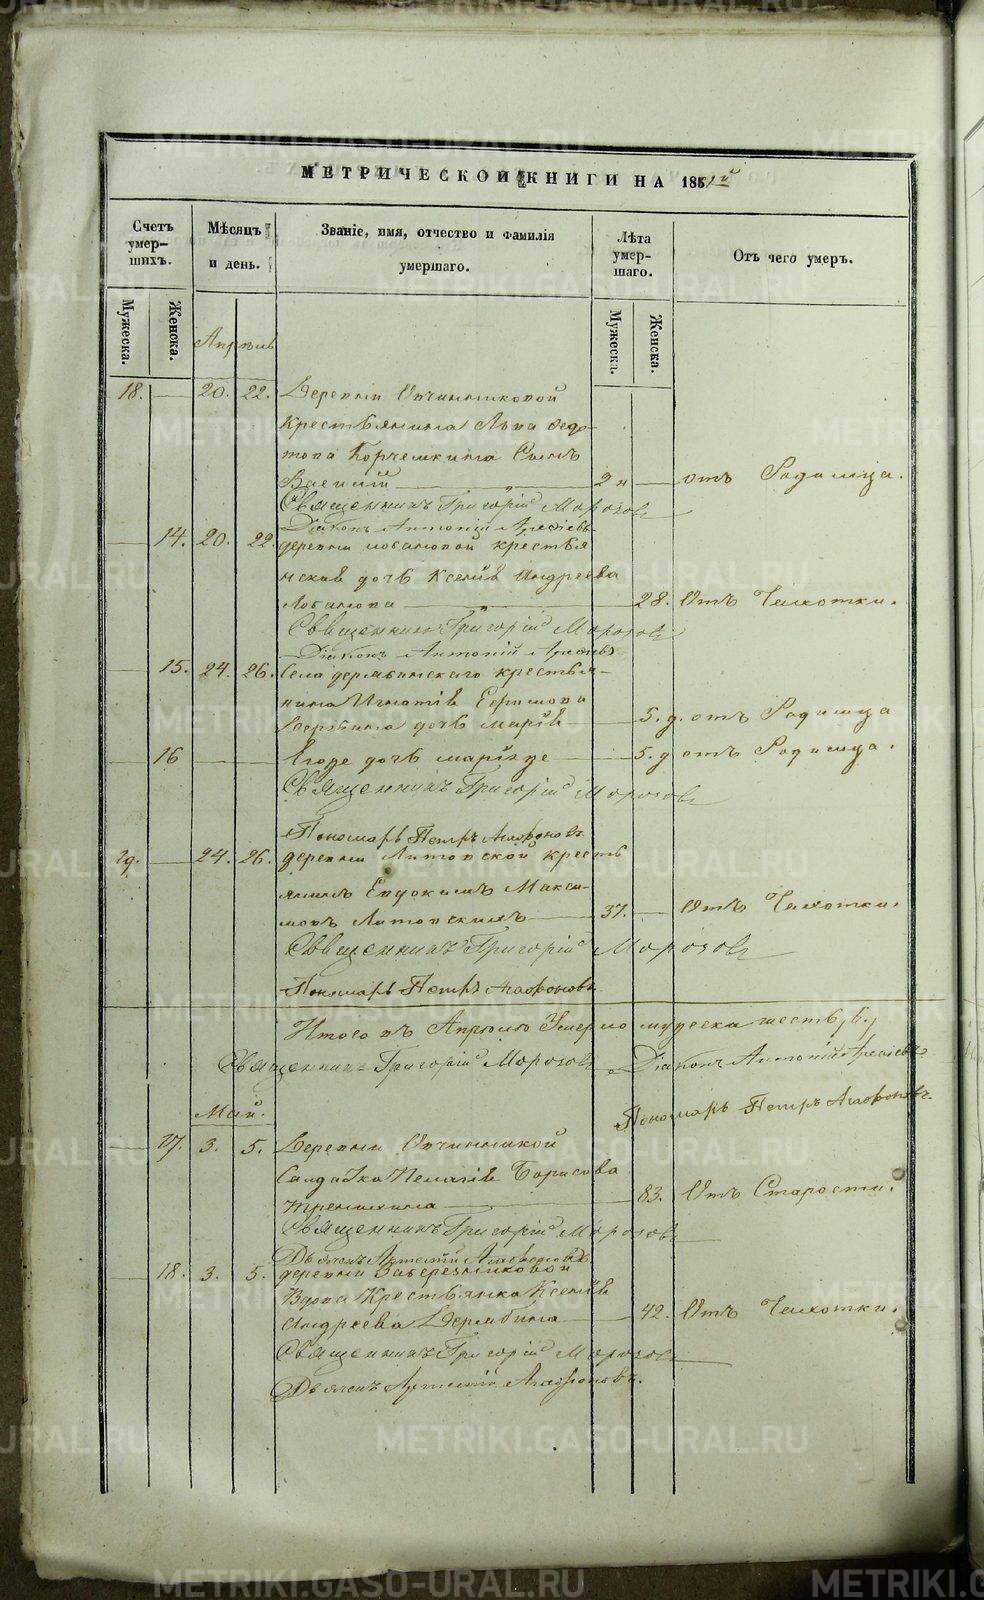 МЕТРИЧЕСКОЙ КНИГИ НА 1851й
Счетъ умер-
шихъ.
Мѣсяцъ
и день.
Званіе, имя, отчество и фамилія
умершаго.
Лѣта
умер-
шаго.
Отъ чего умеръ.
Мужеска.
Женска.
Мужеска.
Женска.
Апрѣль
18. 20. 22. Деревни Овчинниковой
Крестьянина Льва Федо-
това Корчемкина Сынъ
Василій 2 н отъ Родимца.
Священникъ Григорій Морозовъ
Діаконъ Антоній
14. 20. 22 деревни лобановой крестья
нская дочь Ксенія Андреева
Лобанова 28. Отъ Чахотки.
Священникъ Григорій Морозовъ
Діаконъ Антоній
15. 24. 26. Села дерябинскаго крестья-
нина Игнатія Ефимова
Дерябина дочь марія 5. д. отъ Родимца
16 Егоже дочь 5. д отъ Родимца.
Священникъ Григорій Морозовъ
Пономарь Петръ Агафоновъ
19. 24. 26. деревни Литовской кресть
янинъ Евдокимъ Макси-
мовъ Литовскихъ 37. Отъ Чахотки.
Священникъ Григорій Морозовъ
Пономарь Петръ Агафоновъ
Итого въ Апрѣлѣ Умерло мужеска шесть, 6.,
Священникъ Григорій Морозовъ Діаконъ Антоній
Пономарь Петръ Агафоновъ
Май.
17. 3. 5. Деревни
Солдатка Пелагія Борисова
83. Отъ Старости.
Священникъ Григорій Морозовъ
Дьячекъ Артемій Агафоновъ
18. 3. 5. деревни
Вдова Крестьянка Ксенія
Андреева Дерябина 42. Отъ Чахотки.
Священникъ Григорій Морозовъ
Дьячекъ Артемій Агафоновъ.
METRIKI.GASO-URAL.RU